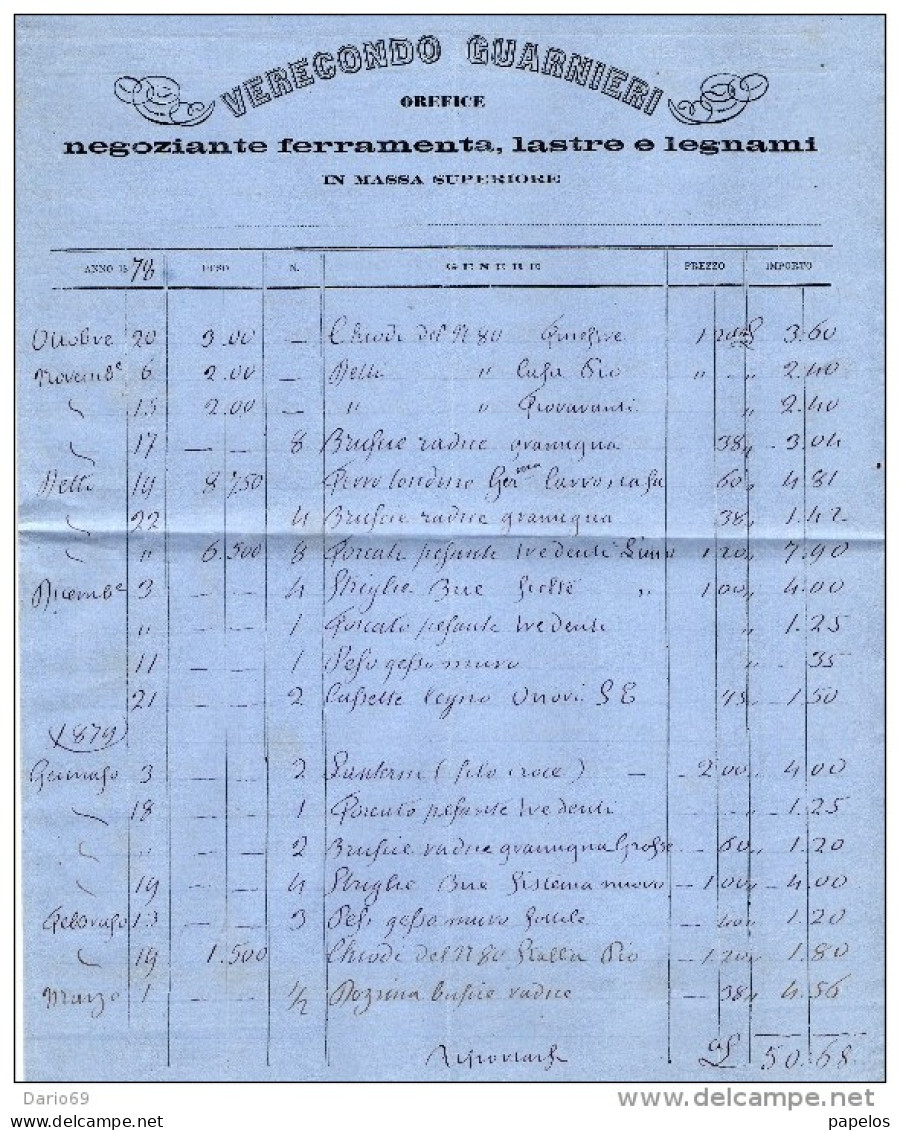 VERECONDO GUARNIERI
OREFICE
negoziante ferramenta, lastre e legnami
IN MASSA SUPERIORE
ANNO 1878 PESO N. GENERE PREZZO IMPORTO
Ottobre 20 3.00 — Chiodi del N 80 1 20 3.60
Novembe 6 2.00 — Detti " Casa Pio " " 2.40
" 15 2.00 — " " " 2.40
" 17 — — 8 Brusche radice gramigna 38 " 3.04
Detti 19 8 750 Ferro tondino 60 " 4.81
" 22 4 Brusche radice gramigna 38 " 1.42
" " 6.500 8 Forcati pesante tre denti 1 20 " 7.90
Dicembe 3 — — 4 Striglie Bue " 1 00 " 4.00
" — — 1 Forcato pesante tre denti " 1.25
11 — — 1 Peso gesso muro " 35
21 — — 2 Cassette legno 75 " 1.50
(1879)
Gennajo 3 — — 2 Lanterni (filo croce) — 2 00 " 4.00
" 18 — — 1 Forcato pesante tre denti " 1.25
" " — — 2 Brusche radice gramigna Grosse — 60 " 1.20
" 19 — — 4 Striglie Bue Sistema nuovo — 1 00 " 4.00
Febbrajo 13 — — 3 Pesi gesso muro — 40 " 1.20
" 19 1.500 Chiodi del N 80 Stalla Pio — 1.20 " 1.80
Marzo 1 — — 1/2 Dozzina radice — 38 " 4.56
50.68
Dario69
www.delcampe.net
papelos